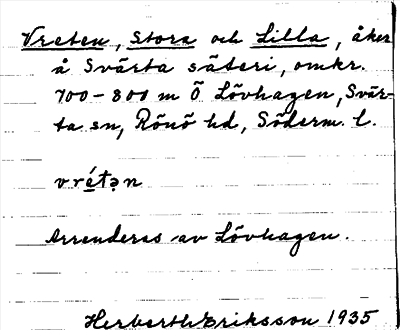 Vreten, Stora och Lilla, åker
å Svärta säteri, omkr.
700-800 m Ö Lövhagen, Svär-
ta sn, Rönö hd, Söderm. l.
vrétən
Arrenderas av Lövhagen.
Herberth Eriksson 1935